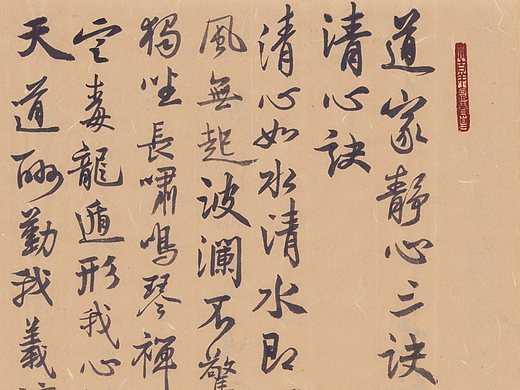 道家靜心三訣
清心訣
清心如水清水即
風無起波瀾不驚
獨坐長嘯鳴琴禪
空毒龍遁形我心
天道酬勤我義